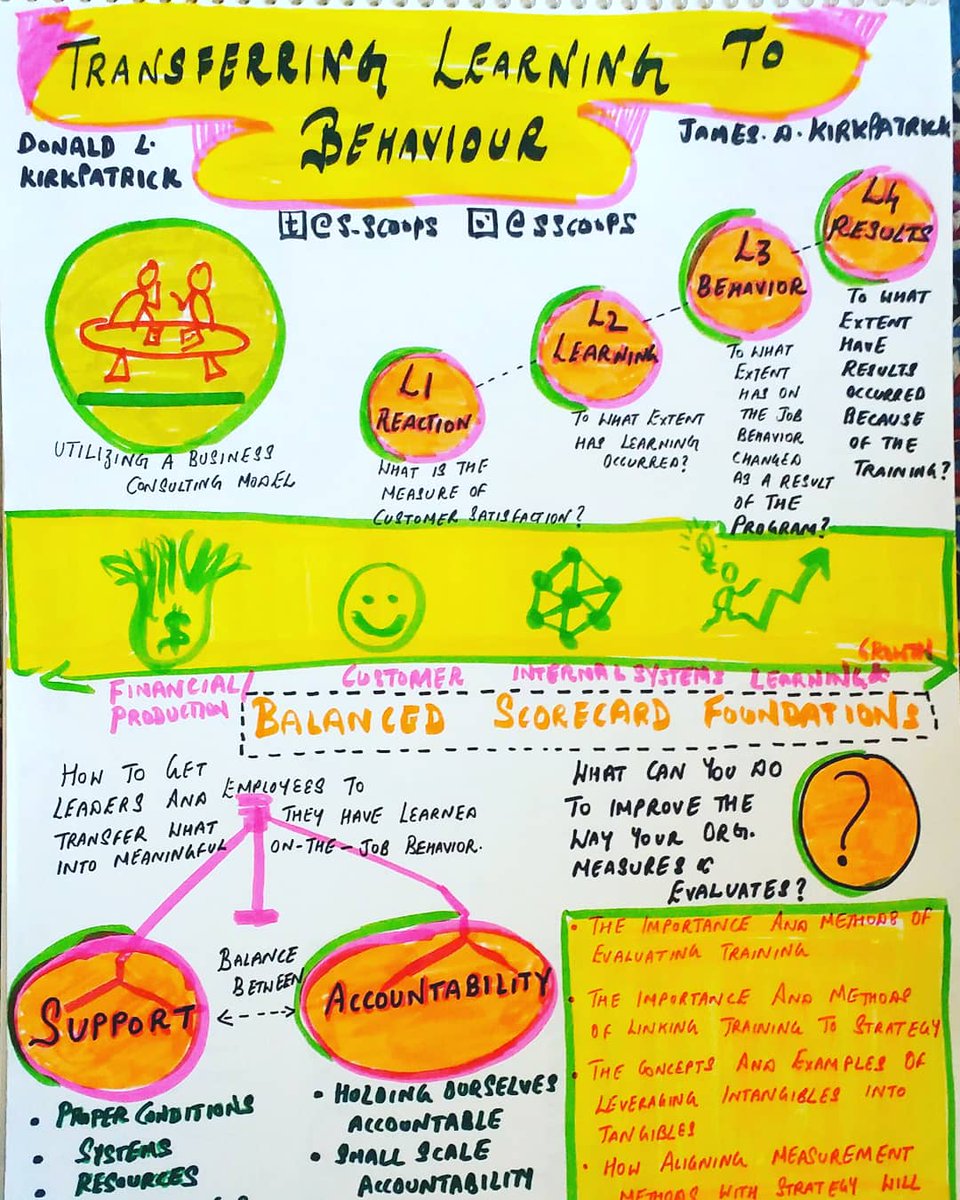 TRANSFERRING LEARNING TO
BEHAVIOUR
DONALD L.
KIRKPATRICK
JAMES. D. KIRKPATRICK
@S_SCOOPS @SSCOOPS
UTILIZING A BUSINESS
CONSULTING MODEL
L1
REACTION
WHAT IS THE
MEASURE OF
CUSTOMER SATISFACTION?
L2
LEARNING
TO WHAT EXTENT
HAS LEARNING
OCCURRED?
L3
BEHAVIOR
TO WHAT
EXTENT
HAS ON
THE JOB
BEHAVIOR
CHANGED
AS A RESULT
OF THE
PROGRAM?
L4
RESULTS
TO WHAT
EXTENT
HAVE
RESULTS
OCCURRED
BECAUSE
OF THE
TRAINING?
$
FINANCIAL/
PRODUCTION
CUSTOMER
INTERNAL SYSTEMS
LEARNING &
GROWTH
BALANCED SCORECARD FOUNDATIONS
HOW TO GET
LEADERS AND EMPLOYEES TO
TRANSFER WHAT THEY HAVE LEARNED
INTO MEANINGFUL ON-THE-JOB BEHAVIOR.
SUPPORT
BALANCE
BETWEEN
ACCOUNTABILITY
• PROPER CONDITIONS
• SYSTEMS
• RESOURCES
• HOLDING OURSELVES
ACCOUNTABLE
• SMALL SCALE
ACCOUNTABILITY
WHAT CAN YOU DO
TO IMPROVE THE
WAY YOUR ORG.
MEASURES &
EVALUATES?
?
• THE IMPORTANCE AND METHODS OF
EVALUATING TRAINING
• THE IMPORTANCE AND METHODS
OF LINKING TRAINING TO STRATEGY
• THE CONCEPTS AND EXAMPLES OF
LEVERAGING INTANGIBLES INTO
TANGIBLES
• HOW ALIGNING MEASUREMENT
METHODS WITH STRATEGY WILL